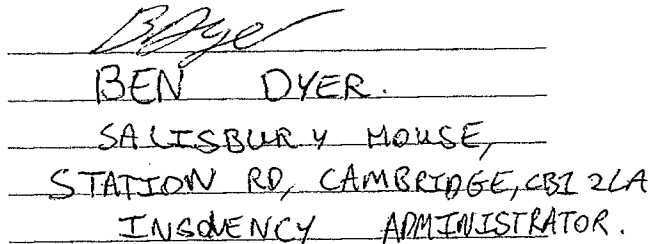 BDyer
BEN DYER.
SALISBURY HOUSE,
STATION RD, CAMBRIDGE, CB1 2LA
INSOLVENCY ADMINISTRATOR.